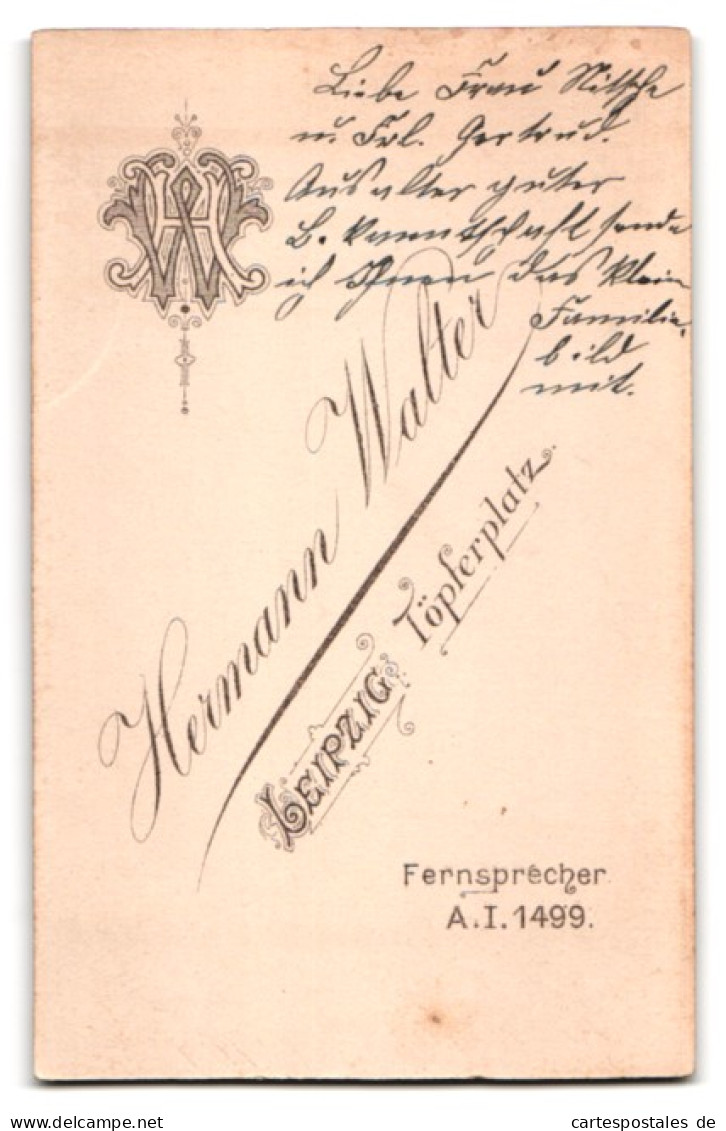 Liebe Frau Nitsche
u. Frl. Gertrud.
Aus alter guter
B. kanntschaft sende
ich Ihnen das klein
Familien
bild
mit.
HW
Hermann Walter
LEIPZIG
Töpferplatz.
Fernsprecher
A.I.1499.
cartespostales de